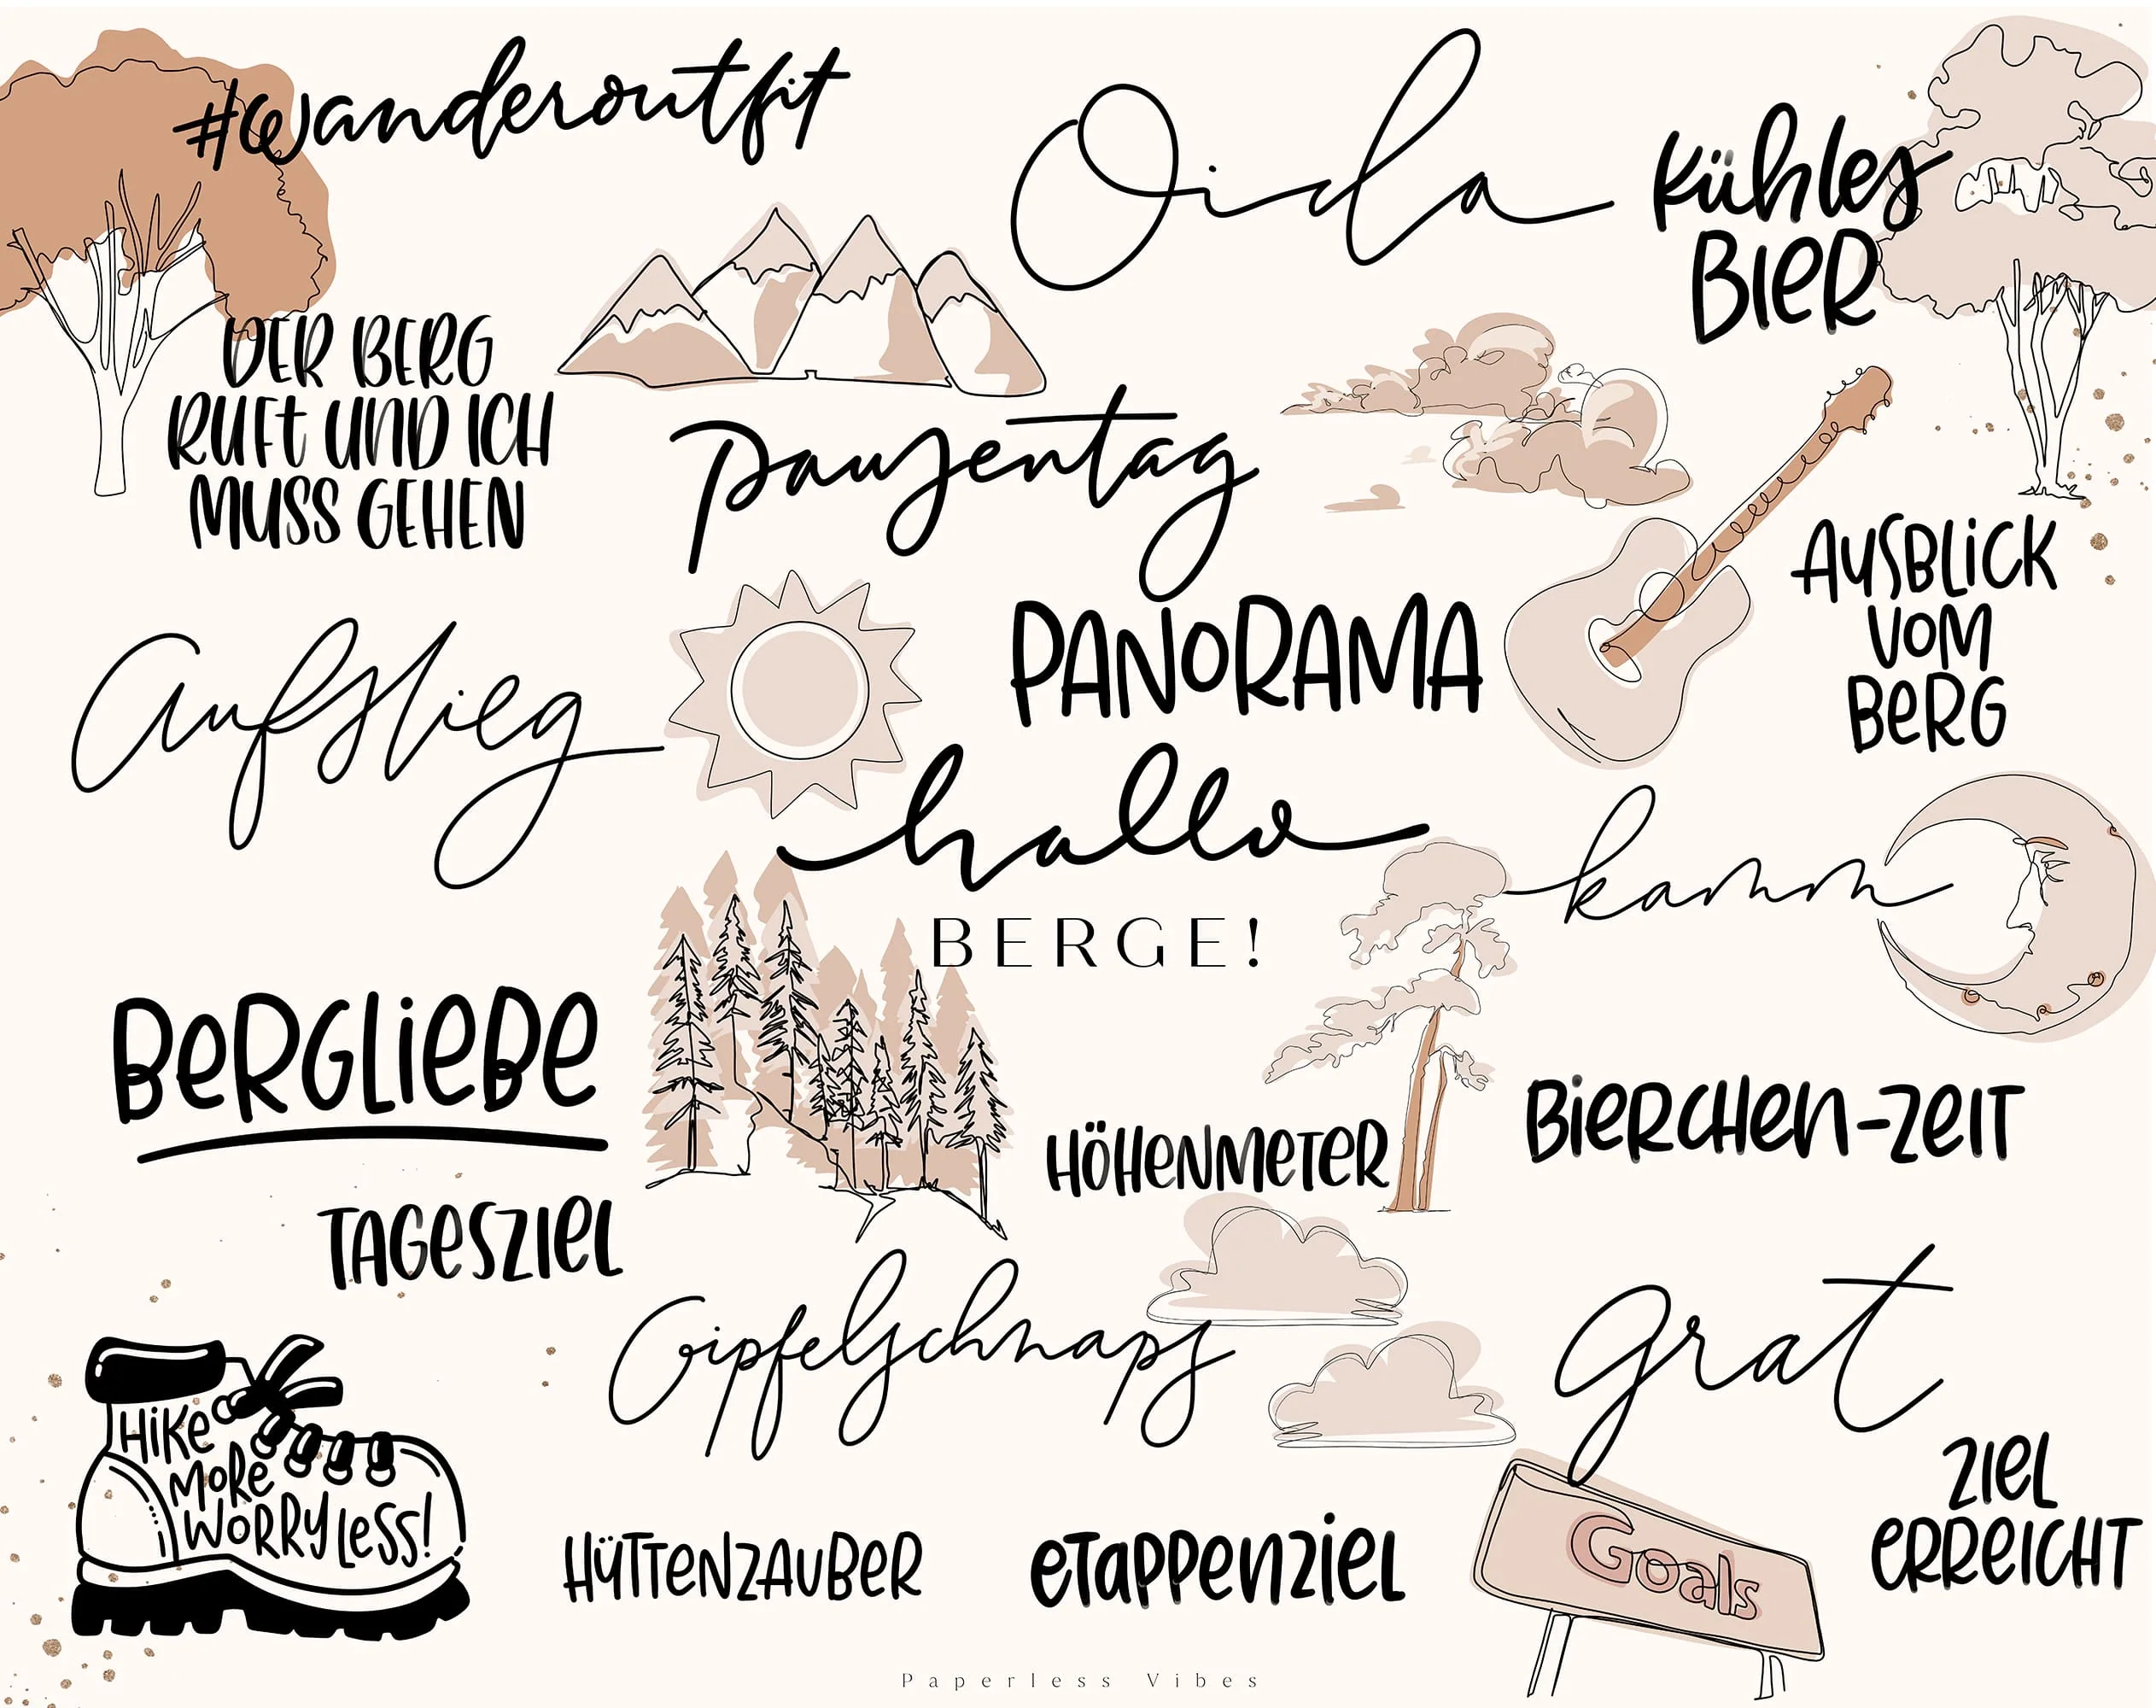 #wanderoutfit
Oida
kühles
BIER
DER BERG
RUFT UND ICH
MUSS GEHEN
pausentag
AUSBLICK
VOM
BERG
Aufstieg
PANORAMA
hallo
BERGE!
kamm
BERGLIEBE
HÖHENMETER
BIERCHEN-ZEIT
TAGESZIEL
Gipfelschnaps
grat
HIKE
MORE
WORRY LESS!
HÜTTENZAUBER
ETAPPENZIEL
Goals
ZIEL
ERREICHT
Paperless Vibes